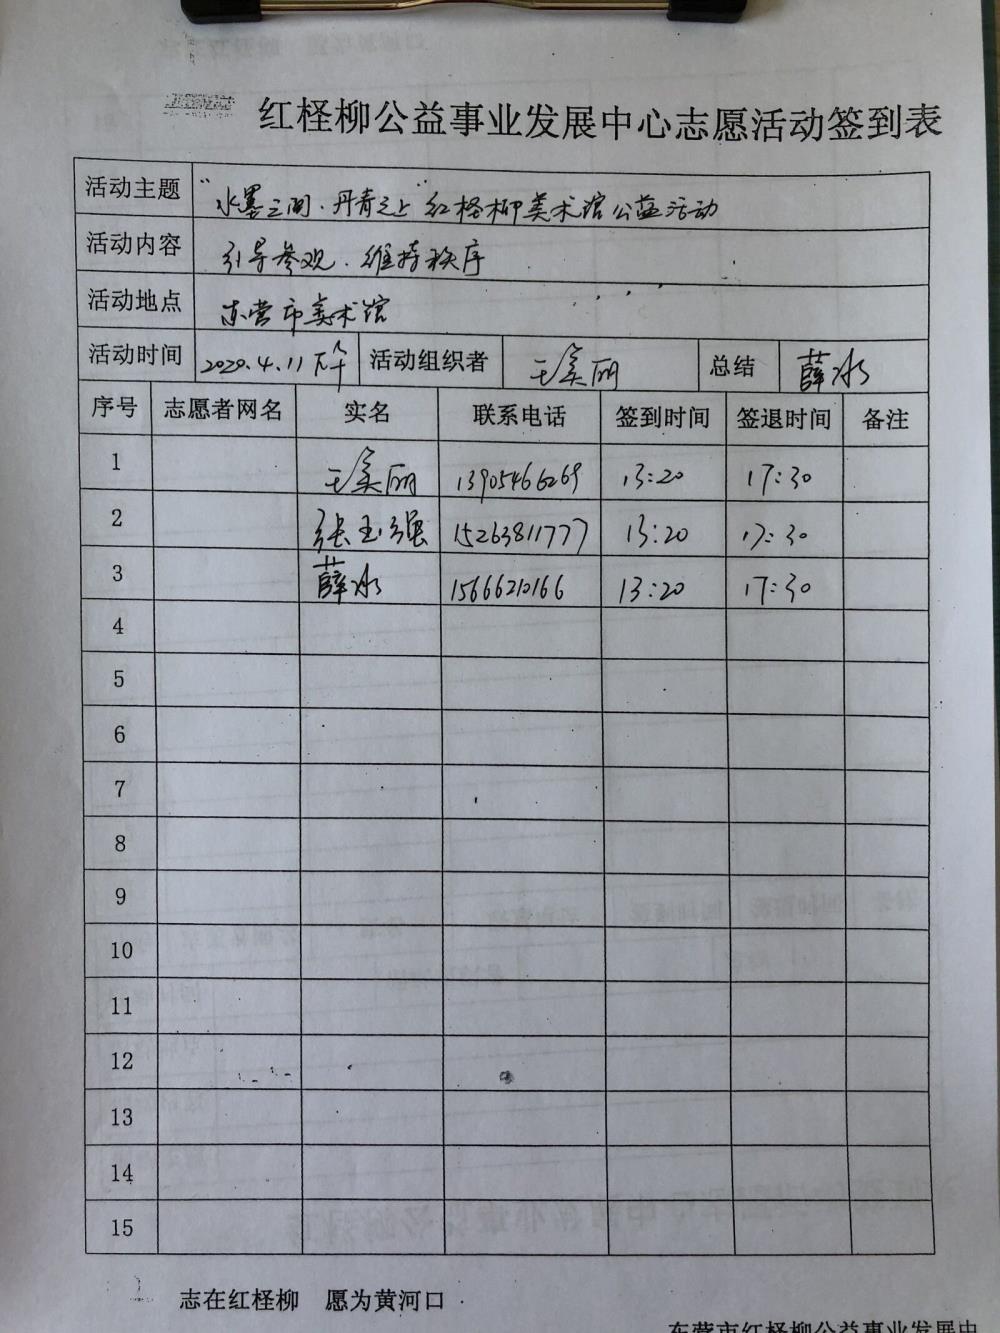 红柽柳公益事业发展中心志愿活动签到表
活动主题 "水墨之间·丹青之上"红柽柳美术馆公益活动
活动内容 引导参观、维持秩序
活动地点 东营市美术馆
活动时间 2020.4.11下午 活动组织者 王奚丽 总结 薛冰
序号 志愿者网名 实名 联系电话 签到时间 签退时间 备注
1 王奚丽 13905466269 13:20 17:30
2 张玉强 15263811777 13:20 17:30
3 薛冰 15666210166 13:20 17:30
4
5
6
7
8
9
10
11
12
13
14
15
志在红柽柳 愿为黄河口
东营市红柽柳公益事业发展中